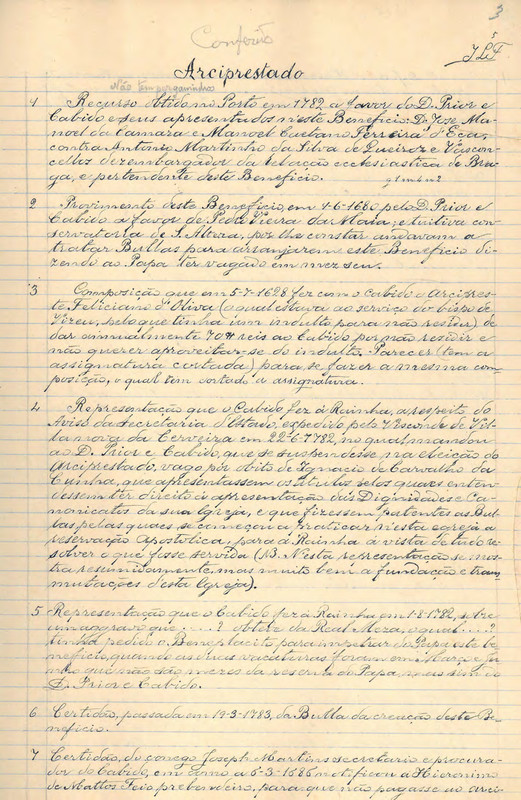 3
5
Conferido
JLF
Arciprestado
Não tem pergaminho
1 Recurso obtido no Porto em 1782 a favor do D. Prior e
Cabido e seus apresentados n'este Beneficio. Dr. Joze Ma-
noel da Camara e Manoel Caetano Ferreira d'Eça,
contra Antonio Martinho da Silva de Queiroz e Vascon-
cellos dezembargador da relação ecclesiastica de Bra-
ga, e pertendente deste Beneficio.
2 Provimento deste Beneficio, em 4-6-1680 pelo D. Prior e
Cabido a favor de Pedro Vieira da Maia, e tuitiva con-
servatoria de S. Alteza, por lhe constar andavam a
tratar Bullas para arranjarem este Beneficio di-
zendo ao Papa ter vagado em mez seu.
3 Composição que em 5-7-1628 fez com o Cabido o Arcipres-
te Feliciano d'Oliva (o qual estava ao serviço do bispo de
Vizeu, pelo que tinha um indulto para não residir) de
dar annualmente 70# reis ao Cabido por não residir e
não querer aproveitar-se do indulto. Parecer (tem a
assignatura cortada) para se fazer a mesma com-
posição, o qual tem cortada a assignatura.
4 Representação que o Cabido fez á Rainha, a respeito do
Aviso da Secretaria d'Estado, expedido pelo Visconde de Vil-
la nova da Cerveira em 22-6-1782, no qual mandou
ao D. Prior e Cabido, que se suspendesse na eleição do
Arciprestado, vago por obito de Ignacio de Carvalho da
Cunha, que apresentassem os titulos pelos quaes enten-
dessem ter direito á apresentação das Dignidades e Ca-
nonicatos da sua Igreja, e que fizessem patentes as Bul-
las pelas quaes, se começou a praticar n'esta egreja a
reservação Apostolica, para a Rainha á vista de tudo re-
solver o que fosse servida (NB. N'esta representação se mos-
tra resumidamente, mas muito bem a fundação e trans-
mutações d'esta Igreja).
5 Representação que o Cabido fez á Rainha em 1-8-1782, sobre
um aggravo que ......? obteve da Real Meza, o qual ....?
tinha pedido o Beneplacito para impetrar do Papa este be-
neficio, quando as duas vacaturas foram em Março e Ju-
nho que não são mezes da reserva do Papa, mas sim do
D. Prior e Cabido.
6 Certidão, passada em 19-3-1783, da Bulla da creação deste Be-
neficio.
7 Certidão, do conego Joseph Martins secretario e procura-
dor do Cabido, em como a 5-3-1686 notificou a Hieronimo
de Mattos Feio prebendeiro, para que não pagasse ao Arci-